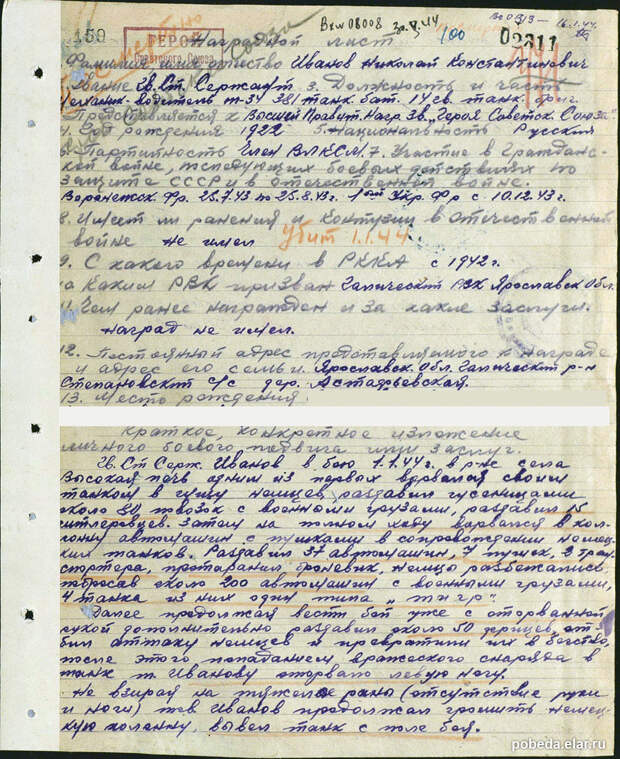 159
Вх№08008 30.V.44
100
02311
ГЕРОЙ
Советского Союза
Посмертно
Наградной лист
Фамилия имя отчество Иванов Николай Константинович
Звание Гв.Ст. Сержант 3. Должность и часть
Механик-водитель Т-34 381 танк. бат. 14 гв. танк. бриг.
Представляется к Высшей Правит. Нагр. Зв. "Героя Советск. Союза"
4. Год рождения 1922 5. Национальность Русский
6. Партийность Член ВЛКСМ. 7. Участие в Гражданс-
кой войне, последующих боевых действиях по
защите СССР и в отечественной войне.
Воронежск. Фр. 25.7.43 по 25.8.43г. 1ый Укр. Фр с 10.12.43г.
8. Имеет ли ранения и контузии в отечественной
войне не имел Убит 1.1.44.
9. С какого времени в РККА с 1942г.
10 Каким РВК призван Галический РВК Ярославск Обл.
11. Чем ранее награжден и за какие заслуги.
наград не имел.
12. Постоянный адрес представляемого к награде
и адрес его семьи. Ярославск. Обл. Галический р-н
Степановский с/с дер. Астафьевская.
13. Место рождения.
Краткое, конкретное изложение
личного боевого подвига или заслуг.
Гв. Ст Серж. Иванов в бою 1.1.44г. в р-не села
Высокая печь одним из первых ворвался своим
танком в гущу немцев, раздавил гусеницами
около 20 повозок с военными грузами, раздавил 15
гитлеровцев. Затем на полном ходу ворвался в кол-
лонну автомашин с пушками в сопровождении немец-
ких танков. Раздавил 37 автомашин, 7 пушек, 2 тран
спортера, протаранил броневик, немцы разбежались
побросав около 200 автомашин с военными грузами,
4 танка из них один типа "тигр".
Далее продолжая вести бой уже с оторванной
рукой дополнительно раздавил около 50 фрицев, от-
бил аттаку немцев и превратили их в бегство,
после этого, попаданием вражеского снаряда в
танк т. Иванову оторвало левую ногу.
Не взирая на тяжелые раны (отсутствие руки
и ноги) тов Иванов продолжал громить немец-
кую колонну, вывел танк с поле боя.
pobeda.elar.ru